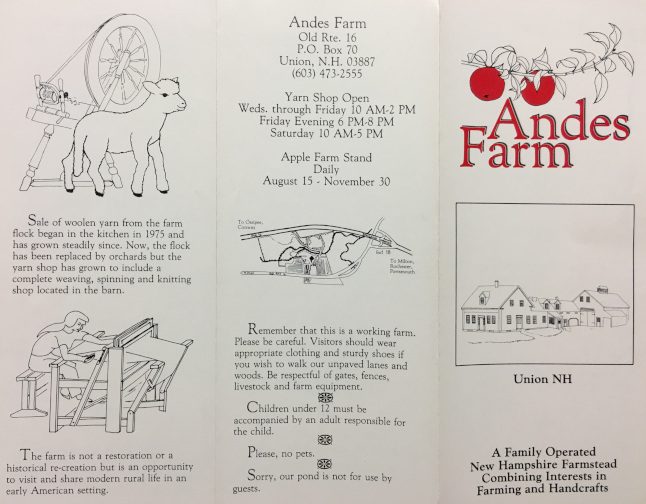 Sale of woolen yarn from the farm
flock began in the kitchen in 1975 and
has grown steadily since. Now, the flock
has been replaced by orchards but the
yarn shop has grown to include a
complete weaving, spinning and knitting
shop located in the barn.
The farm is not a restoration or a
historical re-creation but is an opportunity
to visit and share modern rural life in an
early American setting.
Andes Farm
Old Rte. 16
P.O. Box 70
Union, N.H. 03887
(603) 473-2555
Yarn Shop Open
Weds. through Friday 10 AM-2 PM
Friday Evening 6 PM-8 PM
Saturday 10 AM-5 PM
Apple Farm Stand
Daily
August 15 - November 30
To Ossipee,
Conway
To Milton,
Rochester,
Portsmouth
Remember that this is a working farm.
Please be careful. Visitors should wear
appropriate clothing and sturdy shoes if
you wish to walk our unpaved lanes and
woods. Be respectful of gates, fences,
livestock and farm equipment.
Children under 12 must be
accompanied by an adult responsible for
the child.
Please, no pets.
Sorry, our pond is not for use by
guests.
Andes
Farm
Union NH
A Family Operated
New Hampshire Farmstead
Combining Interests in
Farming and Handcrafts